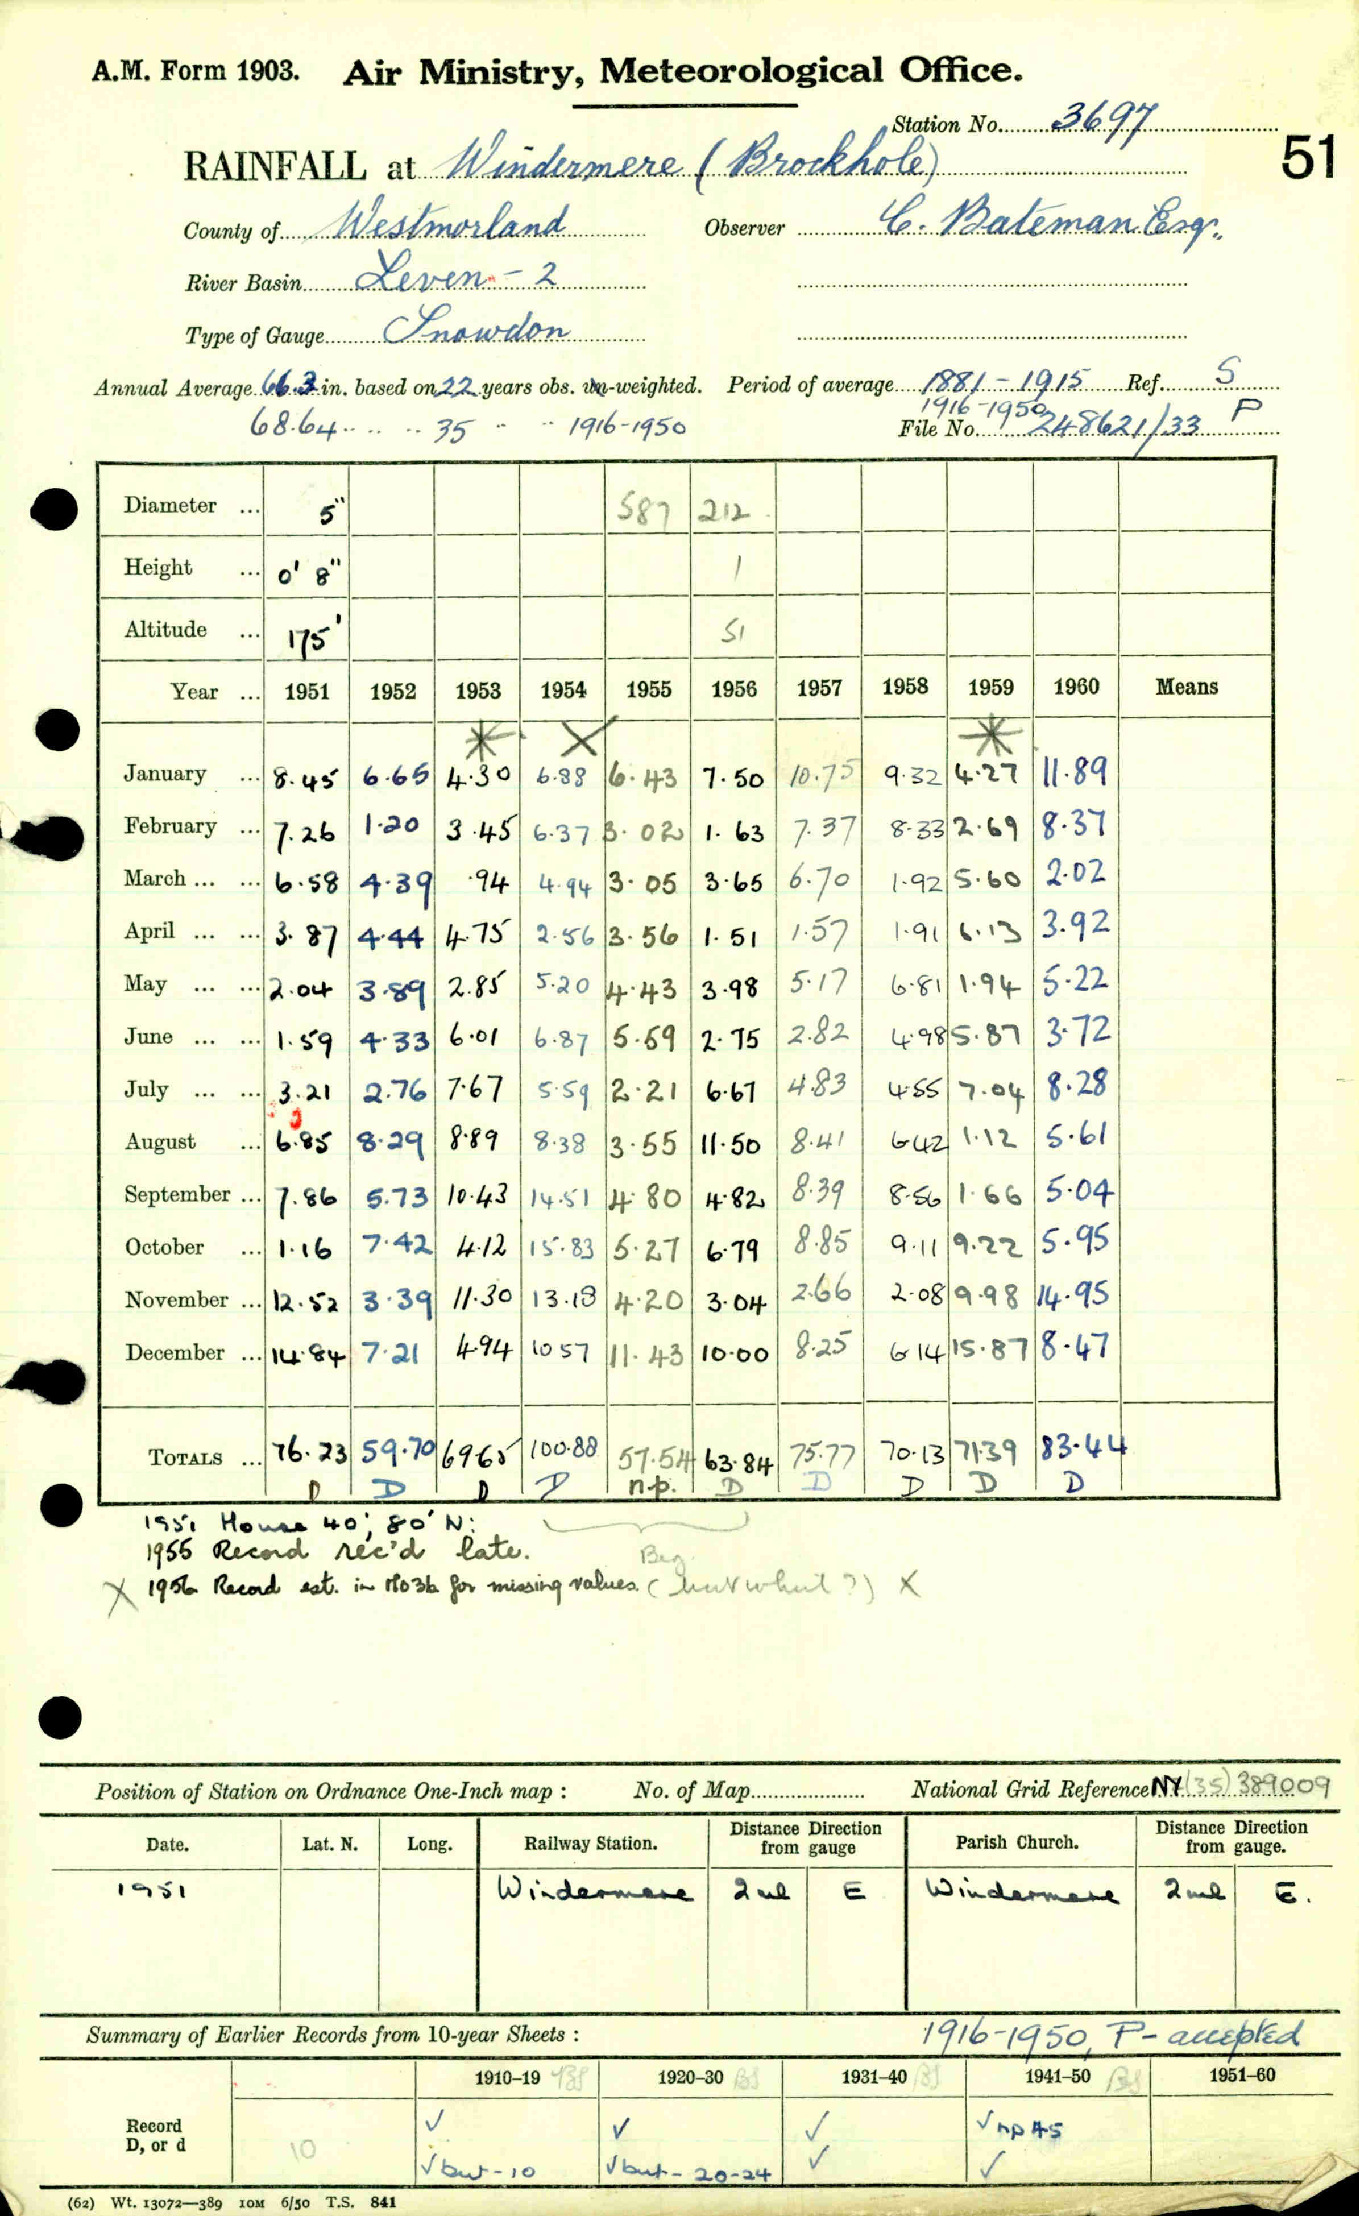 A.M. Form 1903. Air Ministry, Meteorological Office.
Station No. 3697
51
RAINFALL at Windermere (Brockhole)
County of Westmorland Observer C. Bateman Esq.
River Basin Leven - 2
Type of Gauge Snowdon
Annual Average 66.3 in. based on 22 years obs. un-weighted. Period of average 1881-1915 Ref. S
68.64 " " " 35 " " 1916-1950 1916-1950 P
File No. 248621/33
Diameter ... 5" 587 212
Height ... 0' 8" 1
Altitude ... 175' 51
Year ... 1951 1952 1953 1954 1955 1956 1957 1958 1959 1960 Means
January ... 8.45 6.65 4.30 6.88 6.43 7.50 10.75 9.32 4.27 11.89
February ... 7.26 1.20 3.45 6.37 3.02 1.63 7.37 8.33 2.69 8.37
March ... ... 6.58 4.39 .94 4.94 3.05 3.65 6.70 1.92 5.60 2.02
April ... ... 3.87 4.44 4.75 2.56 3.56 1.51 1.57 1.91 6.13 3.92
May ... ... 2.04 3.89 2.85 5.20 4.43 3.98 5.17 6.81 1.94 5.22
June ... ... 1.59 4.33 6.01 6.87 5.59 2.75 2.82 4.98 5.87 3.72
July ... ... 3.21 2.76 7.67 5.59 2.21 6.67 4.83 4.55 7.04 8.28
August ... 6.85 8.29 8.89 8.38 3.55 11.50 8.41 6.42 1.12 5.61
September ... 7.86 5.73 10.43 14.51 4.80 4.82 8.39 8.56 1.66 5.04
October ... 1.16 7.42 4.12 15.83 5.27 6.79 8.85 9.11 9.22 5.95
November ... 12.52 3.39 11.30 13.18 4.20 3.04 2.66 2.08 9.98 14.95
December ... 14.84 7.21 4.94 10.57 11.43 10.00 8.25 6.14 15.87 8.47
TOTALS ... 76.23 59.70 69.65 100.88 57.54 63.84 75.77 70.13 71.39 83.44
D D D D n.p. D D D D D
1951 House 40', 80' N:
1955 Record rec'd late.
X 1956 Record est. in MO3b for missing values. (but what?) X
Position of Station on Ordnance One-Inch map : No. of Map National Grid Reference NY (35) 389009
Date. Lat. N. Long. Railway Station. Distance from gauge Direction Parish Church. Distance from gauge. Direction
1951 Windermere 2 ml E Windermere 2 ml E.
Summary of Earlier Records from 10-year Sheets : 1916-1950, P - accepted
1910–19 1920–30 1931–40 1941–50 1951–60
Record ✓ ✓ ✓ ✓ np 45
D, or d 10 ✓ but - 10 ✓ but - 20-24 ✓ ✓
(62) Wt. 13072—389 10M 6/50 T.S. 841